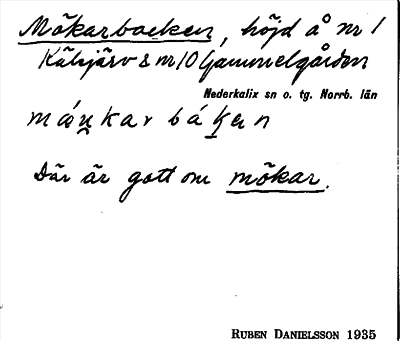 Mökarbacken, höjd å nr 1
Kälvjärv & nr 10 Gammelgården
Nederkalix sn o. tg. Norrb. län
Där är gott om mökar.
RUBEN DANIELSSON 1935